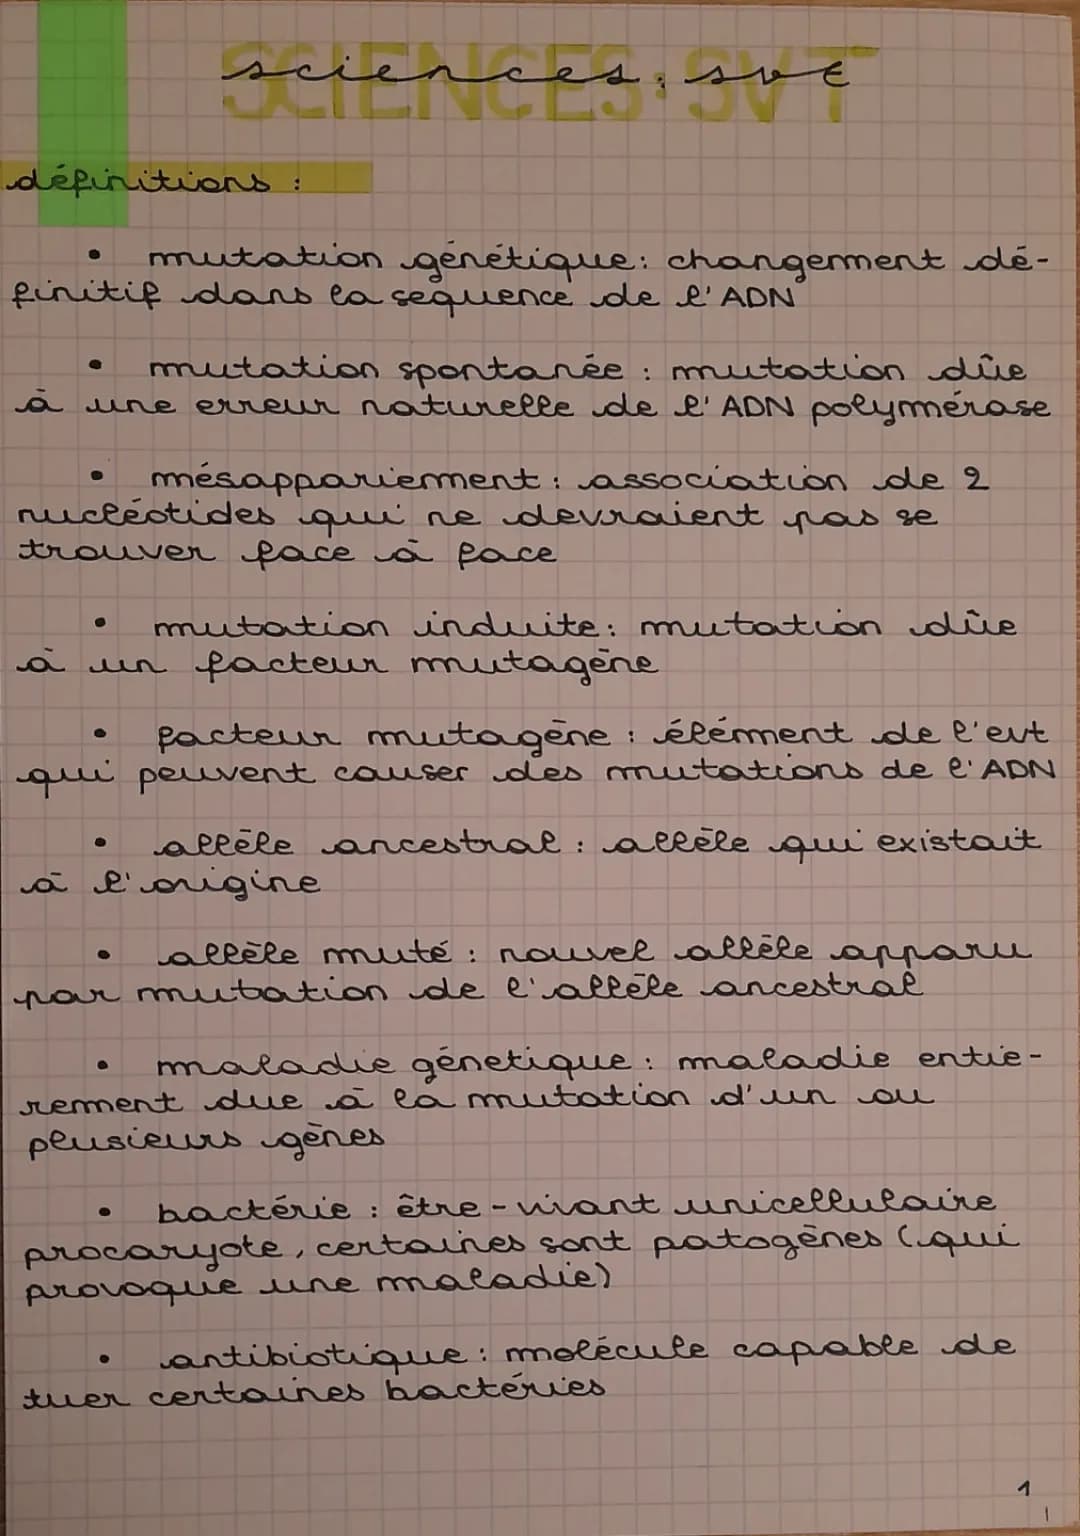 SCIENCES: SVT
sciences: svt
définitions :
• mutation génétique: changement dé-
finitif dans la séquence de l'ADN
• mutation spontanée : mutation dûe
à une erreur naturelle de l'ADN polymérase
• mésappariement : association de 2
nucléotides qui ne devraient pas se
trouver face à face
• mutation induite: mutation dûe
à un facteur mutagène
• facteur mutagène : élément de l'evt
qui peuvent causer des mutations de l'ADN
• allèle ancestral : allèle qui existait
à l'origine
• allèle muté : nouvel allèle apparu
par mutation de l'allèle ancestral
• maladie génetique : maladie entie-
rement due à la mutation d'un ou
plusieurs gènes
• bactérie : être-vivant unicellulaire
procaryote, certaines sont patogènes (qui
provoque une maladie)
• antibiotique : molécule capable de
tuer certaines bactéries
1
1